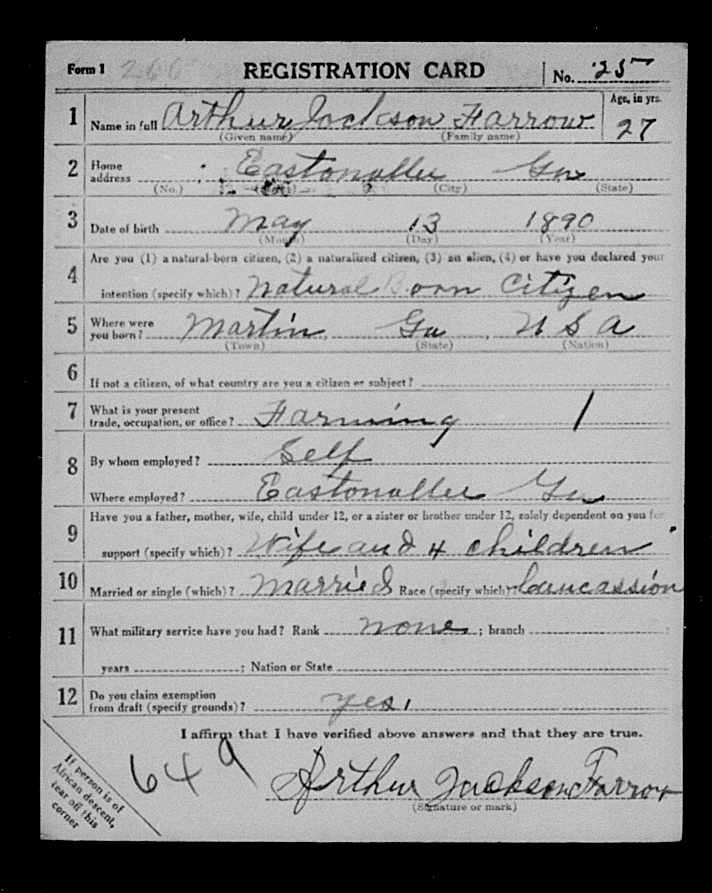 Form 1 266 REGISTRATION CARD No. 25
1 Name in full Arthur Jackson Farrow Age, in yrs. 27
(Given name) (Family name)
2 Home address Eastonallee Ga
(No.) (City) (State)
3 Date of birth May 13 1890
(Month) (Day) (Year)
4 Are you (1) a natural-born citizen, (2) a naturalized citizen, (3) an alien, (4) or have you declared your
intention (specify which)? Natural Born Citizen
5 Where were you born? Martin, Ga, U S A
(Town) (State) (Nation)
6 If not a citizen, of what country are you a citizen or subject?
7 What is your present trade, occupation, or office? Farming 1
8 By whom employed? Self
Where employed? Eastonallee Ga
9 Have you a father, mother, wife, child under 12, or a sister or brother under 12, solely dependent on you for
support (specify which)? Wife and 4 children
10 Married or single (which)? Married Race (specify which)? Caucassion
11 What military service have you had? Rank none ; branch
years ; Nation or State
12 Do you claim exemption from draft (specify grounds)? yes,
I affirm that I have verified above answers and that they are true.
649 Arthur Jackson Farrow
(Signature or mark)
If person is of
African descent,
tear off this
corner